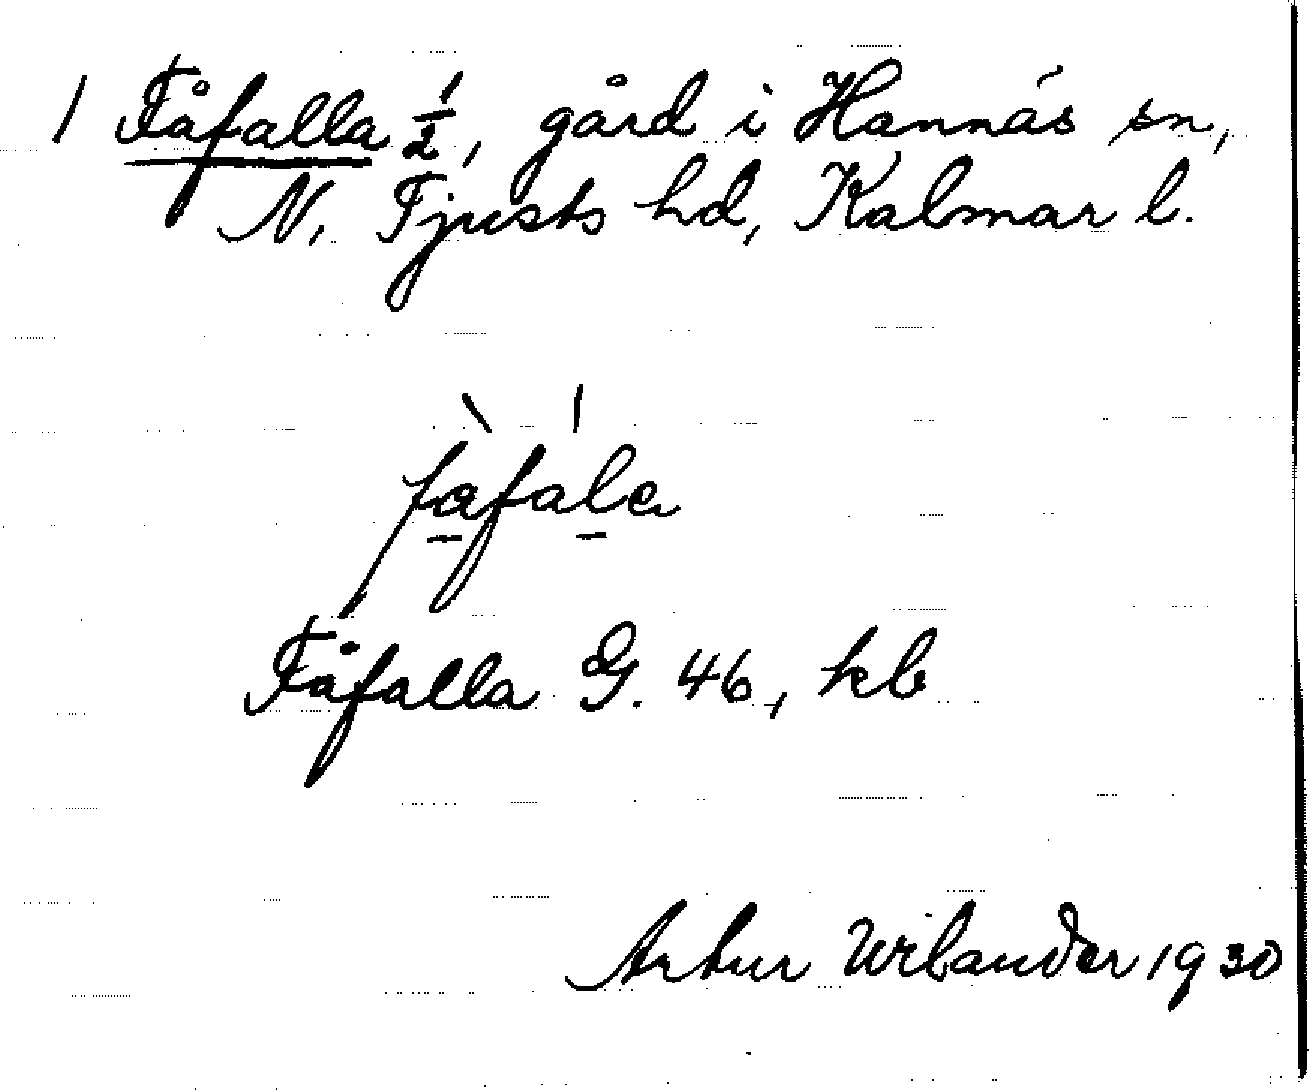 1 Fåfalla ½, gård i Hannäs sn,
N. Tjusts hd, Kalmar l.
fàfála
Fåfalla G. 46, kb
Artur Wilander 1930